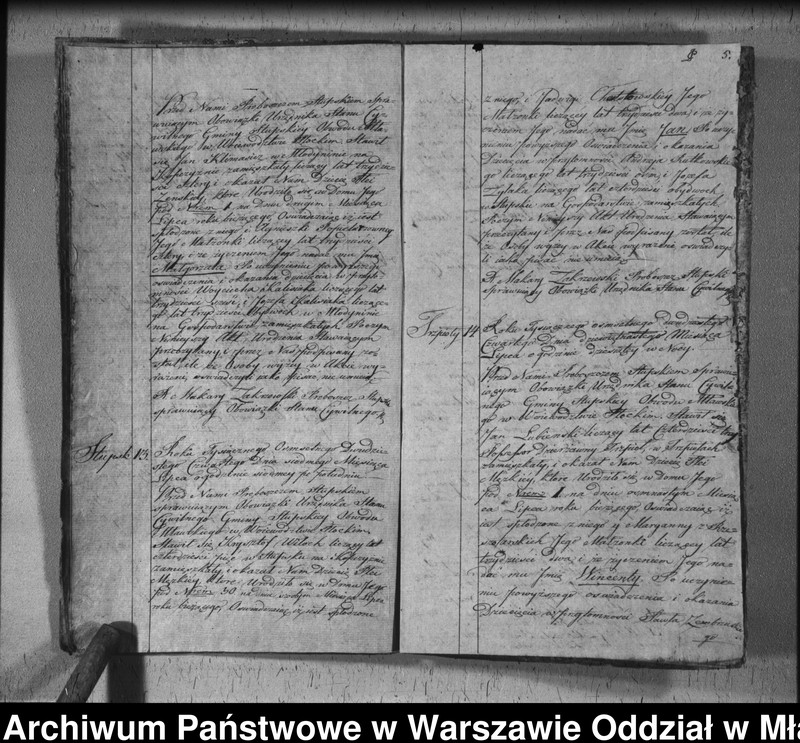 Przed Nami Proboszczem Stupskim Spra-
wuiącym Obowiązki Urzędnika Stanu Cy-
wilnego Gminy Stupskiey Obwodu Mła-
wskiego w Woiewództwie Płockim, Stawił
się Jan Klimasz w Młodyninie na
Kopczyznie zamieszkały liczący lat trzydzie
ści cztery i okazał Nam Dziecię Płci
Żenskiey które Urodziło się w Domu Jego
pod Nrem 1 na Dniu drugim Miesiąca
Lipca roku bieżącego, Oświadczaiąc iż iest
spłodzone z niego i Agnieszki
Jego Małżonki liczącey lat trzydzieści
i że życzeniem Jego nadać mu Imię
Małgorzata. Po uczynieniu powyższego
oświadczenia i okazania dziecięcia w przyto-
mności Woyciecha Kaliszka liczącego lat
trzydzieści i Jozefa Kaliszka liczące-
go lat trzydzieści Obydwóch w Młodyninie
na Gospodarstwie zamieszkałych Poczym
Ninieyszy Akt Urodzenia Stawaiącym
przeczytany i przez Nas podpisany zos-
tał, ile że Osoby wyżey w Akcie wy-
rażone oświadczyli iako pisać nie umieią
X. Makary Zakrzewski Proboszcz Stupski
sprawuiący Obowiązki Stanu Cywilnego
Stupsk 13.
Roku Tysiącznego Osmsetnego Dwudzie-
stego Czwartego Dnia siodmego Miesiąca
Lipca o godzinie siodmey po południu
Przed Nami Proboszczem Stupskim
sprawuiącym Obowiązki Urzędnika Stanu
Cywilnego Gminy Stupskiey Obwodu
Mławskiego w Woiewództwie Płockim
Stawił się Krysztof liczący lat
czterdzieści pięć w Stupsku na Kopczyznie
zamieszkały i okazał Nam Dziecię Płci
Męzkiey które Urodziło się w Domu Jego
pod Nrem 30 na dniu Miesiąca Lipca
roku bieżącego, Oświadczaiąc iż iest spłodzone
5.
z niego i Jadwigi Chodkowskiey Jego
Małżonki liczącey lat trzydzieści dwa i że ży-
czeniem Jego nadać mu Imię Jan. Po uczy-
nieniu powyższego Oświadczenia i okazania
Dziecięcia w przytomności Andrzeia
liczącego lat trzydzieści ośm i Jozefa
liczącego lat czterdzieści obydwóch
w Stupsku na Gospodarstwie zamieszkałych
Poczym Ninieyszy Akt Urodzenia Stawaiącym
przeczytany i przez Nas podpisany został, ile
że Osoby wyżey w Akcie wyrażone oświadczy-
li iako pisać nie umieią
X. Makary Zakrzewski Proboszcz Stupski
sprawuiący Obowiązki Urzędnika Stanu Cywilnego
Trzpioły 14
Roku Tysiącznego osmsetnego dwudziestego
Czwartego Dnia dziewiętnastego Miesiąca
Lipca o godzinie dziewiątey w Nocy.
Przed Nami Proboszczem Stupskim Sprawu-
iącym Obowiązki Urzędnika Stanu Cywil-
nego Gminy Stupskiey Obwodu Mławskie-
go w Woiewództwie Płockim. Stawił się
Jan Lubienski liczący lat czterdzieści trzy
Possessor Dzierżawny w Trzpiołach
zamieszkały i okazał Nam Dziecię Płci
Męzkiey które Urodziło się w Domu Jego
pod Nrem 1 na dniu osmnastym Miesią-
ca Lipca roku bieżącego, Oświadczaiąc iż
iest spłodzone z niego y Maryanny z
Jego Małżonki liczącey lat
trzydzieści dwa i że życzeniem Jego nad-
dać mu Imię Wincenty. Po uczynie-
niu powyższego oświadczenia i okazania
Dziecięcia w przytomności Pawła
Archiwum Państwowe w Warszawie Oddział w Mła